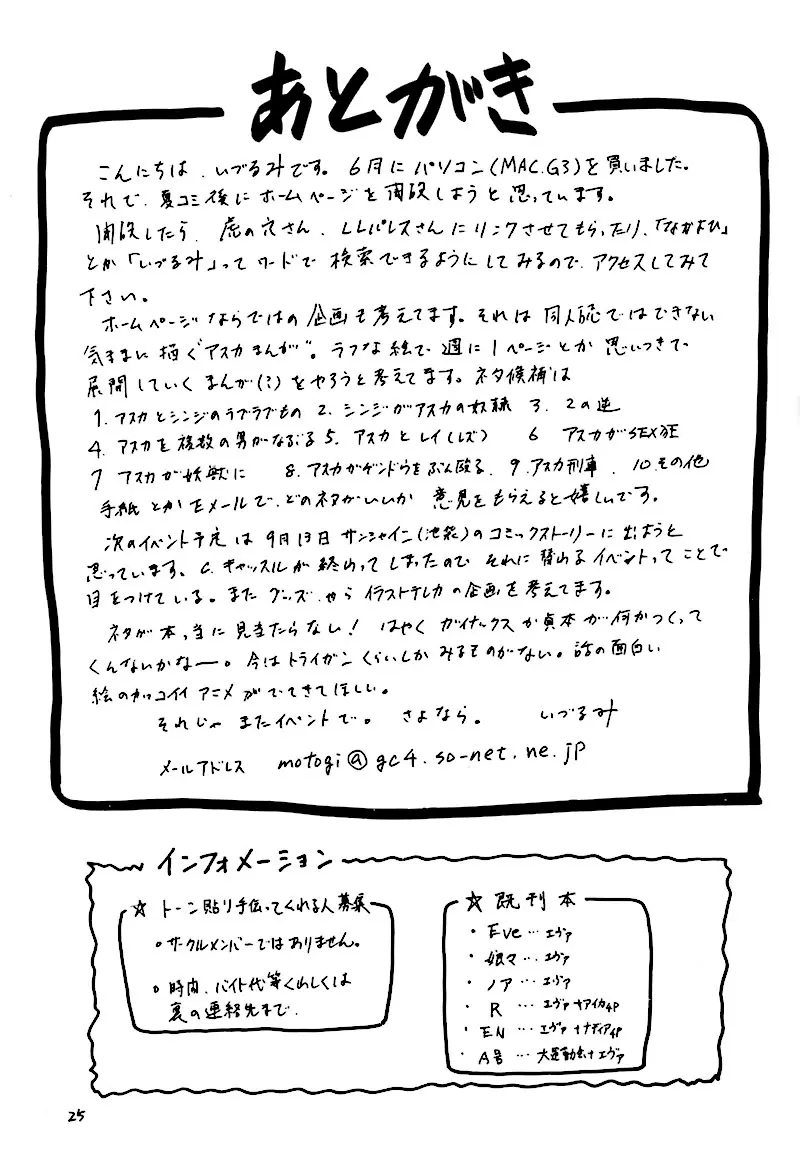 あとがき
こんにちは、いづるみです。6月にパソコン(MAC.G3)を買いました。
それで、夏コミ後にホームページを開設しようと思っています。
開設したら、虎の穴さん、LLパレスさんにリンクさせてもらったり、「なかよひ」
とか「いづるみ」ってワードで検索できるようにしてみるので、アクセスしてみて
下さい。
ホームページならではの企画も考えてます。それは同人誌ではできない
気ままに描く“アスカまんが”。ラフな絵で週に1ページとか思いつきで
展開していくまんが(?)をやろうと考えてます。ネタ候補は
1.アスカとシンジのラブラブもの 2.シンジがアスカの奴隷 3.2の逆
4.アスカを複数の男がなぶる 5.アスカとレイ(レズ) 6 アスカがSEX狂
7 アスカが妖獣に 8.アスカがゲンドウをぶん殴る、9.アスカ刑事、10.その他
手紙とかEメールで、どのネタがいいか意見をもらえると嬉しいです。
次のイベント予定は9月13日サンシャイン(池袋)のコミックストーリーに出ようと
思っています。C.キャッスルが終わってしまったので それに替わるイベントってことで
目をつけている。またグッズやらイラストテレカの企画を考えてます。
ネタが本当に見当たらない! はやくガイナックスか貞本が何かつくって
くんないかなー。今はトライガンくらいしかみるものがない。話の面白い
絵のカッコイイアニメがでてきてほしい。
それじゃまたイベントで。さよなら。 いづるみ
メールアドレス motogi@gc4.so-net.ne.jp
インフォメーション
☆トーン貼り手伝ってくれる人募集
○サークルメンバーではありません。
○時間、バイト代等くわしくは
裏の連絡先まで.
☆既刊本
・Eve…エヴァ
・娘々…エヴァ
・ノア…エヴァ
・R…エヴァ+アイカ4P
・EN…エヴァ+ナディア4P
・A号…大運動会+エヴァ
25